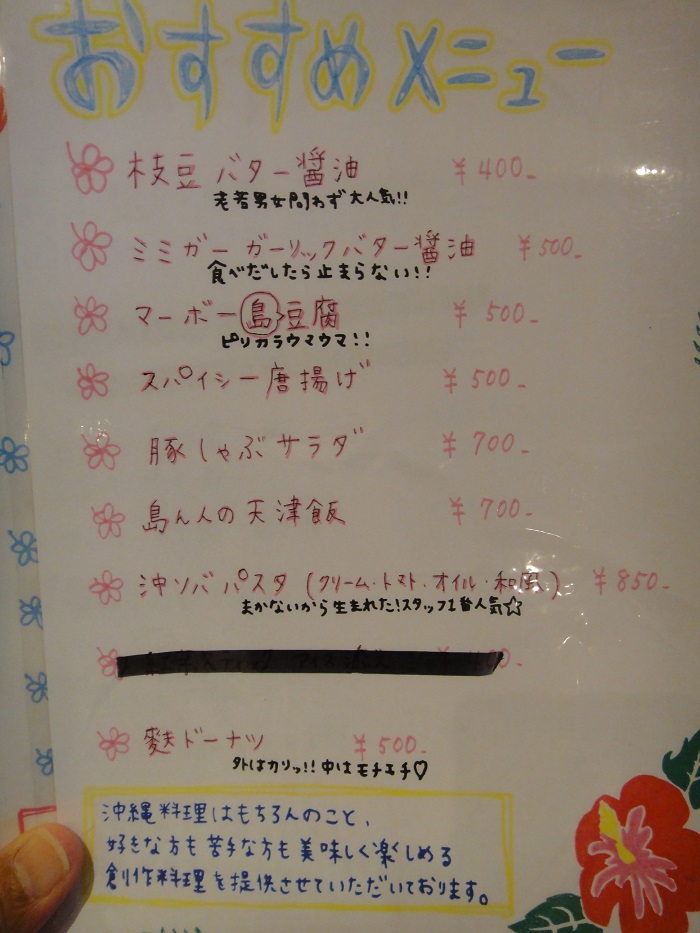 おすすめメニュー
枝豆バター醤油 ¥400-
老若男女問わず大人気!!
ミミガーガーリックバター醤油 ¥500-
食べだしたら止まらない!!
マーボー島豆腐 ¥500-
ピリカラウマウマ!!
スパイシー唐揚げ ¥500-
豚しゃぶサラダ ¥700-
島ん人の天津飯 ¥700-
沖ソバパスタ(クリーム・トマト・オイル・和風) ¥850-
まかないから生まれた!スタッフ1番人気☆
麩ドーナツ ¥500-
外はカリッ!!中はモチモチ♡
沖縄料理はもちろんのこと、
好きな方も苦手な方も美味しく楽しめる
創作料理を提供させていただいております。